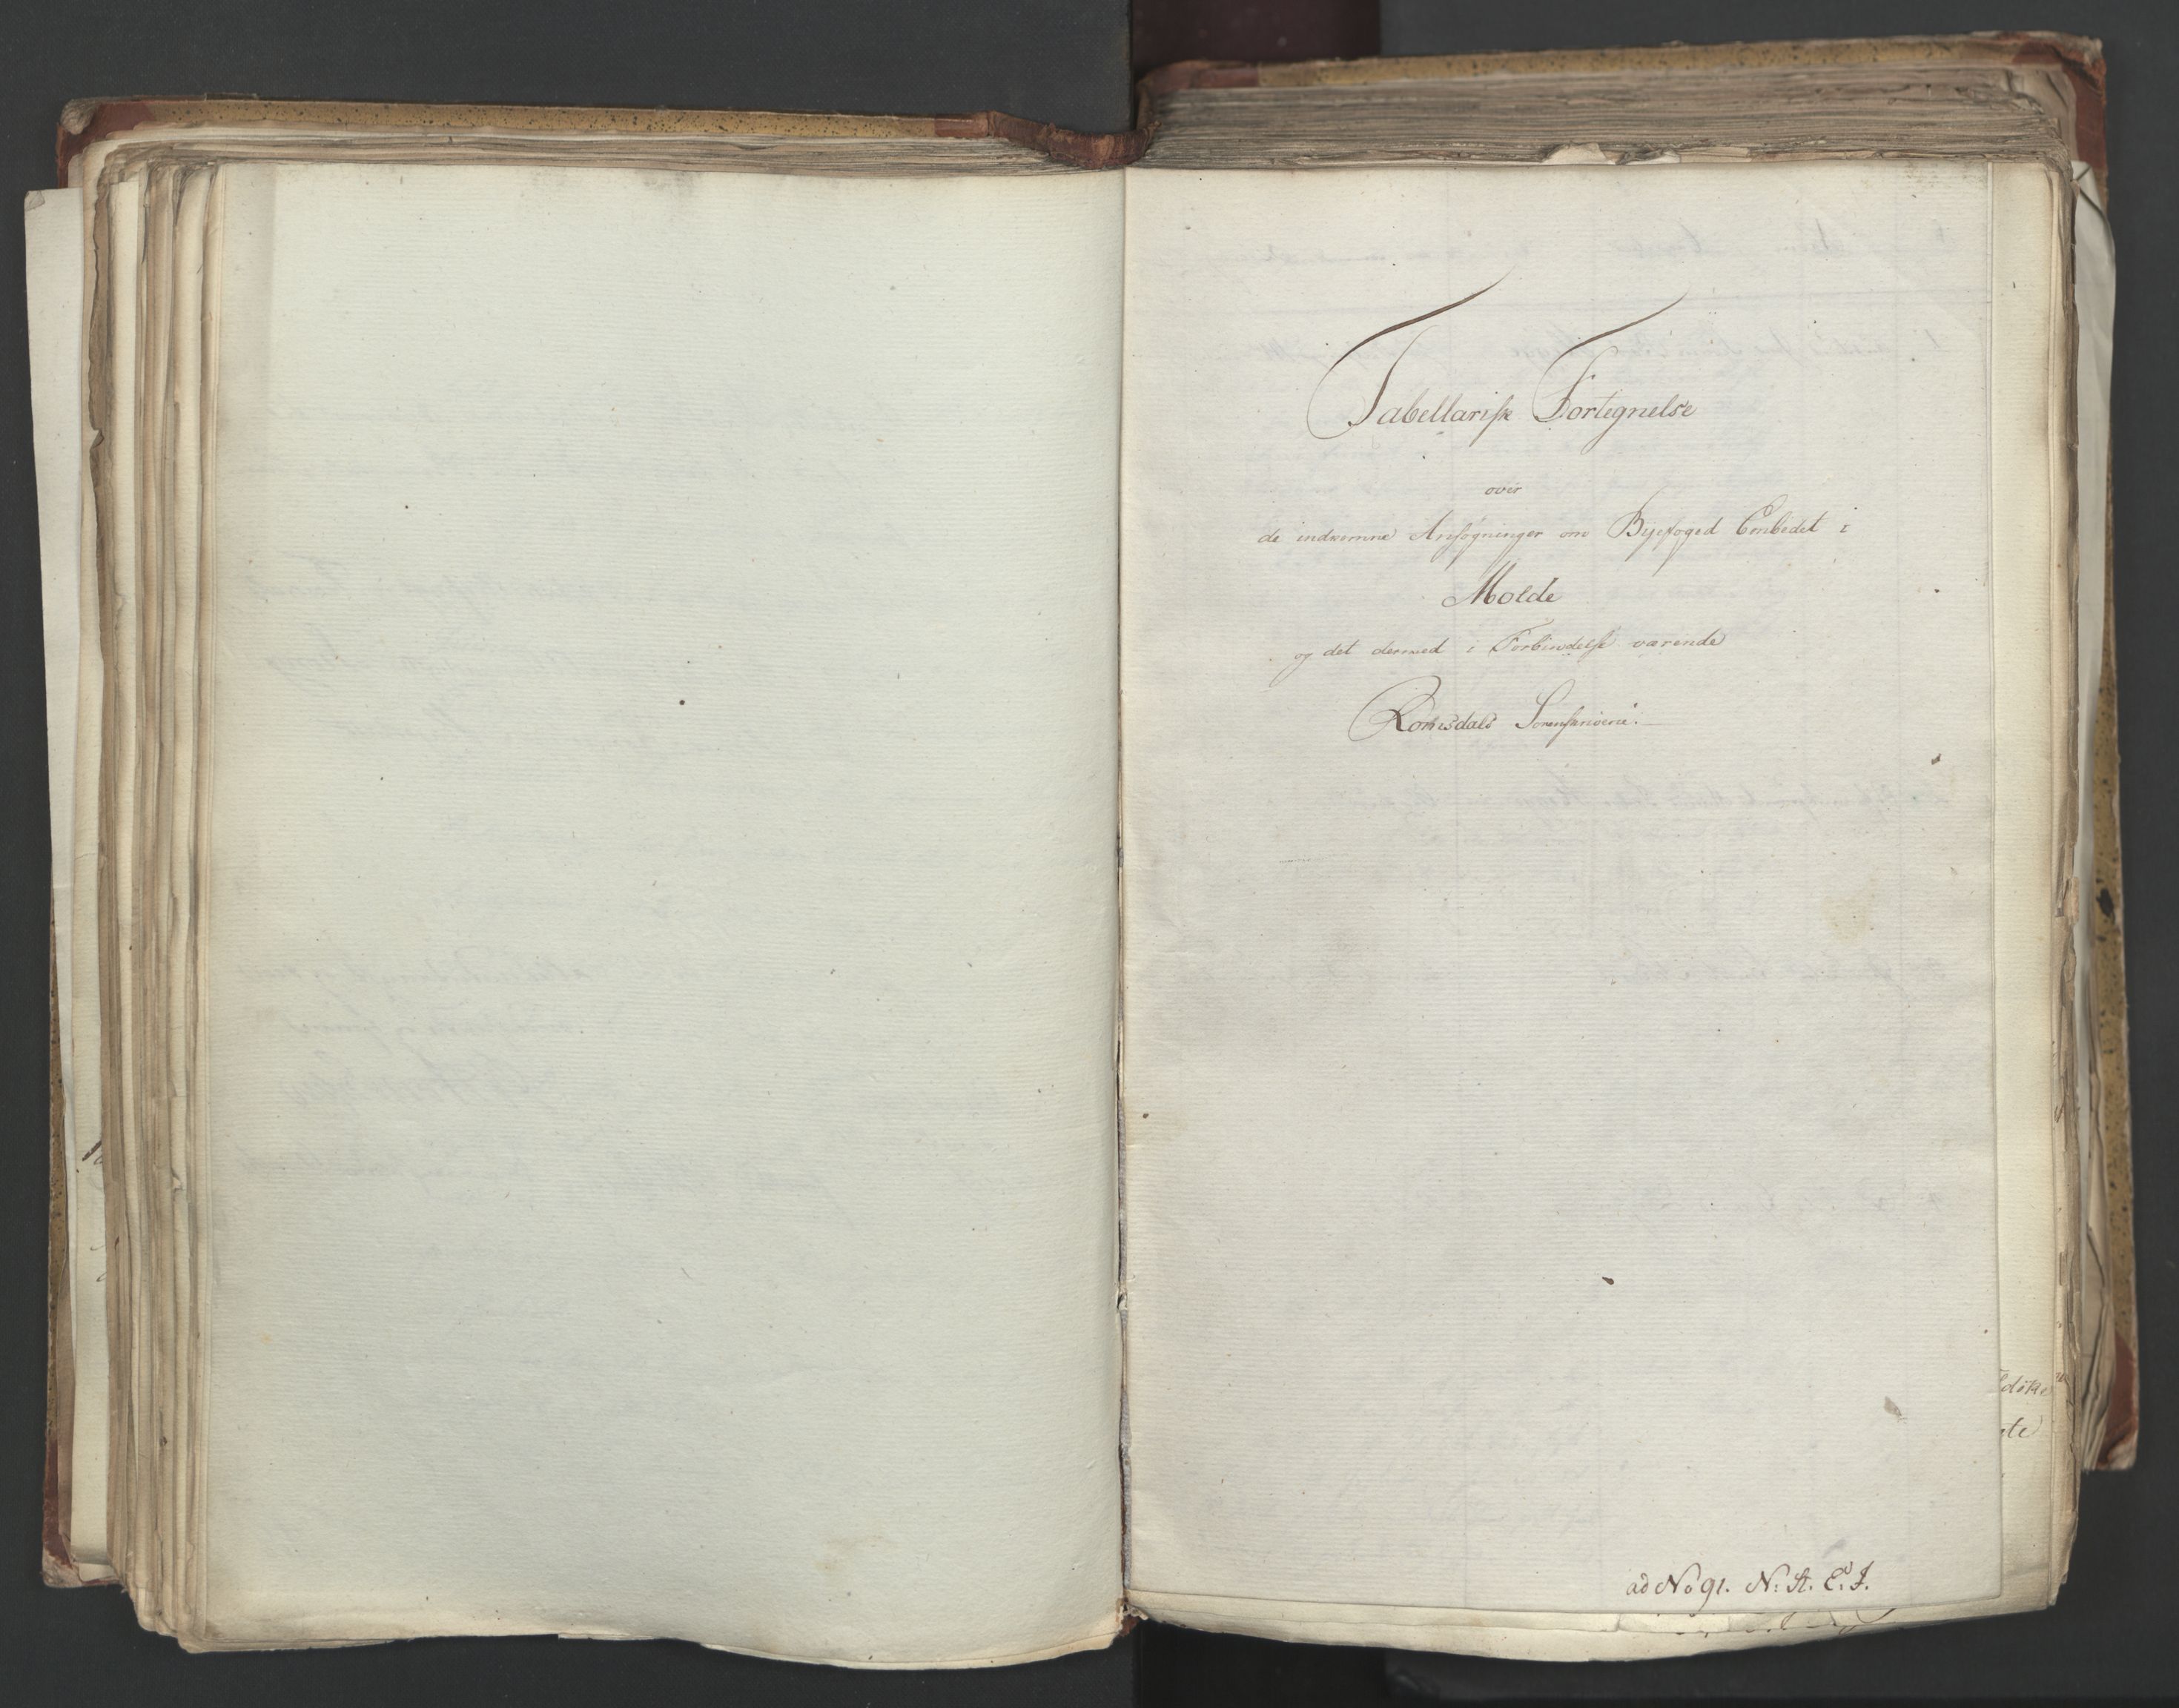 Tabellarisk Fortegnelse
over
de indkomne Ansøgninger om Byefoged Embedet i
Molde
og det dermed i Forbindelse værende
Romsdals Sorenskriverie.
ad No 91. N. A. E. J.